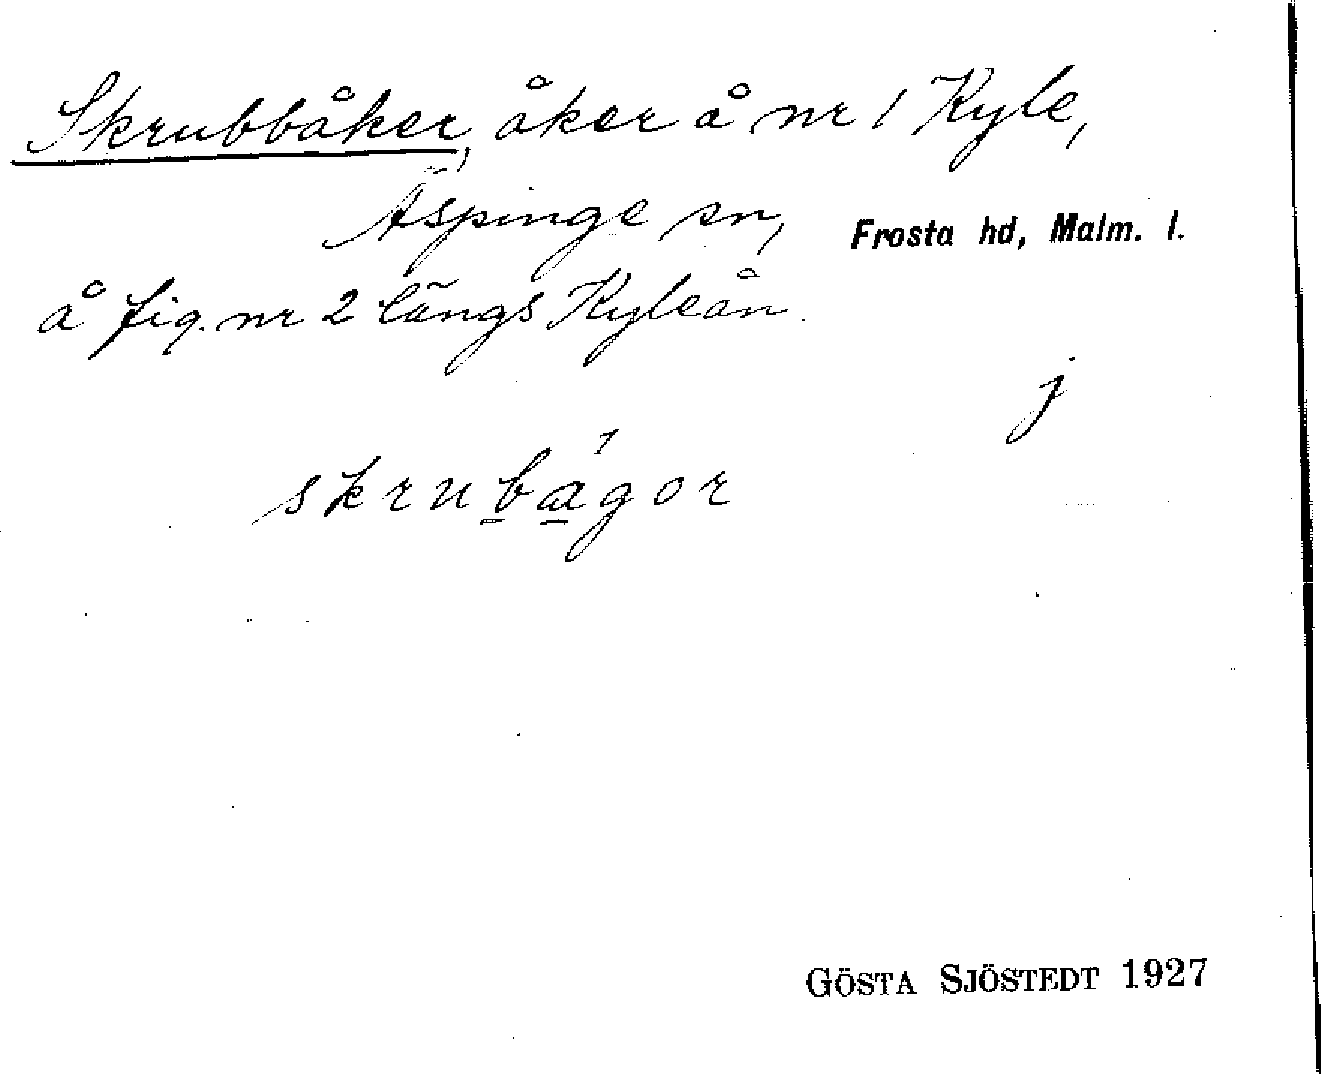 Skrubbåker, åker å nr 1 Kyle,
Äspinge sn, Frosta hd, Malm. l.
å fig. nr 2 längs Kyleån.
j
skrubágor
GÖSTA SJÖSTEDT 1927